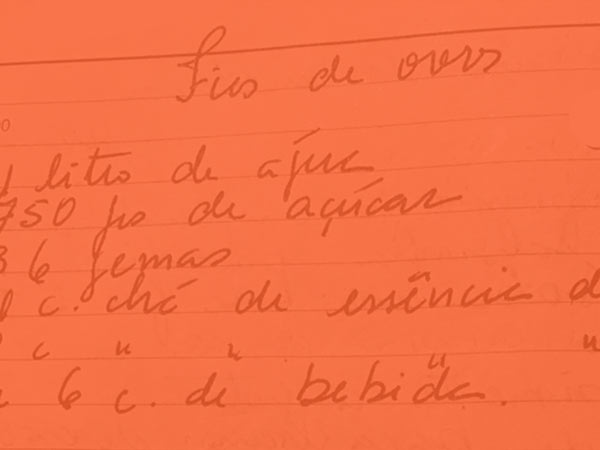 Fios de ovos
1 litro de água
750 gs de açúcar
36 gemas
1 c. chá de essência d
c " " "
6 c. de bebida.